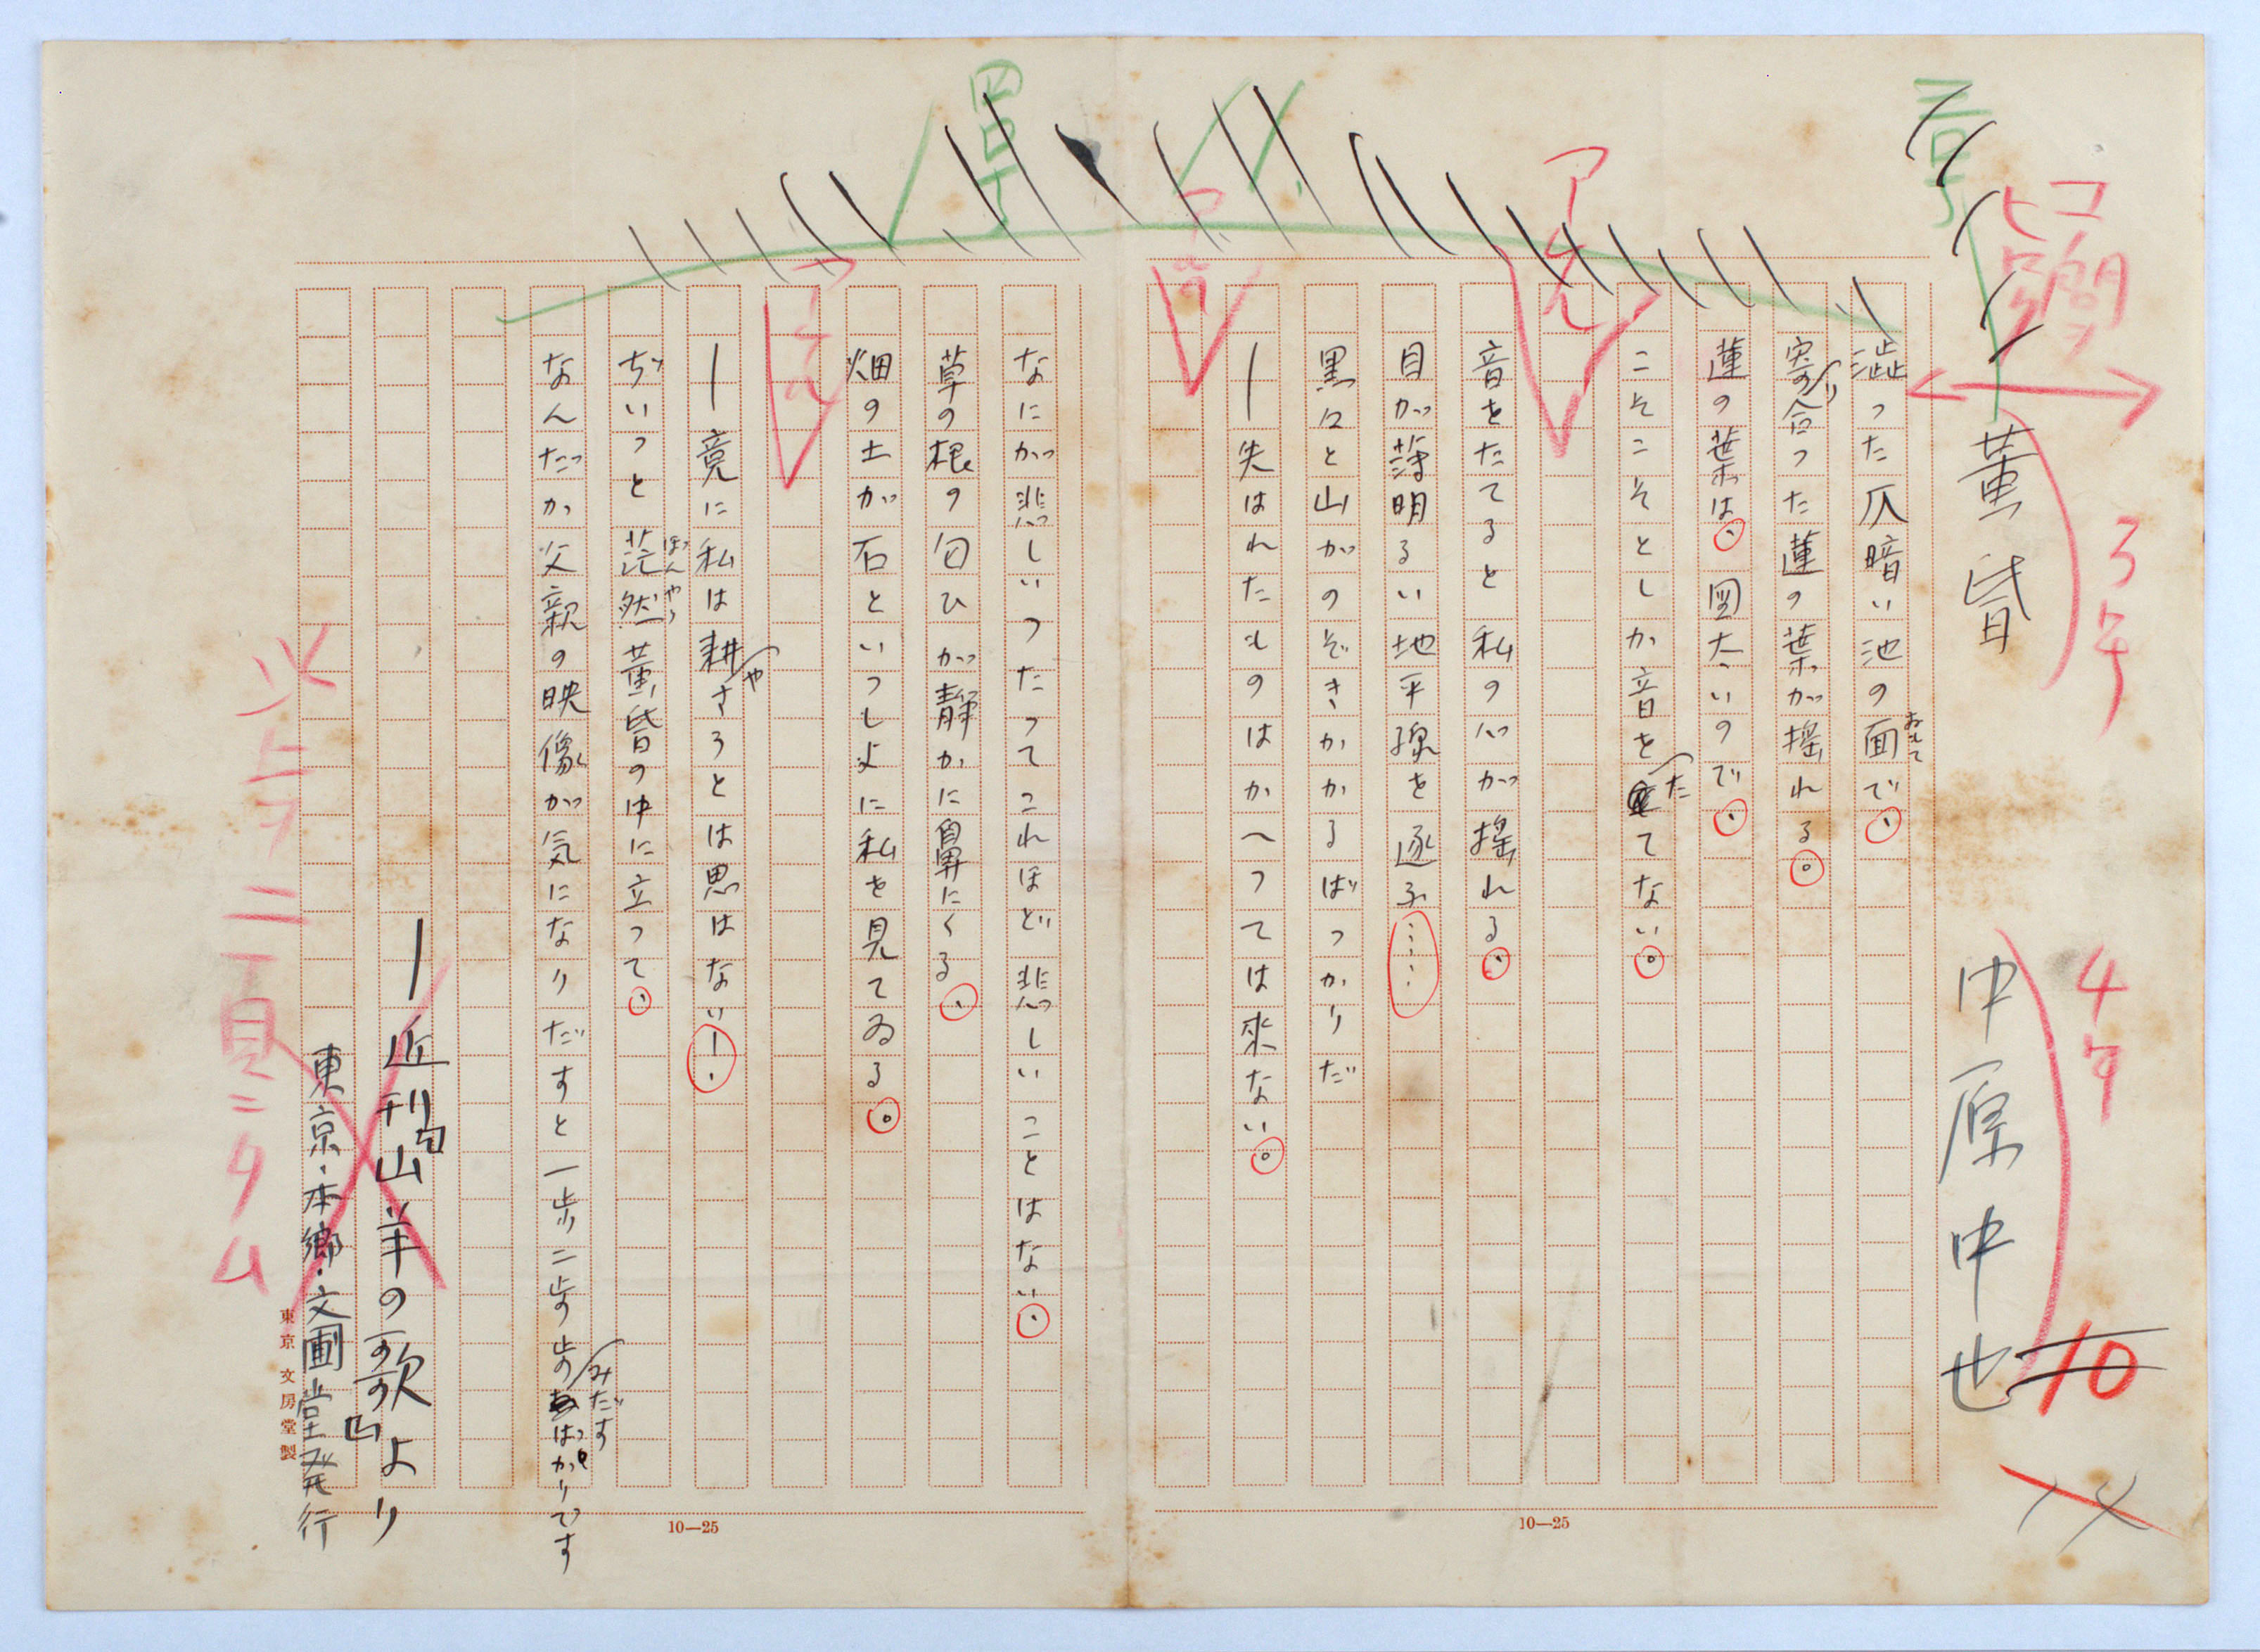 黄昏
中原中也
渋った仄暗い池の面で、
おもて
寄り合った蓮の葉が揺れる。
蓮の葉は、図太いので、
こそこそとしか音をたてない。
音をたてると私の心が揺れる、
目が薄明るい地平線を逐ふ……
黒々と山がのぞきかかるばっかりだ
―失はれたものはかへつては来ない。
なにが悲しいつたってこれほど悲しいことはない、
草の根の匂ひが静かに鼻にくる、
畑の土が石といつしよに私を見てゐる。
―竟に私は耕やさうとは思はない―、
ぢいっと茫然黄昏の中に立って、
ぼんやり
なんだか父親の映像が気になりだすと一歩二歩歩みだすばかりです
―近刊「山羊の歌」より
東京・本郷・文圃堂発行
3号
4号
10
アキ
アキ
アキ
以上ヲ二頁ニクム
東京 文房堂製
10―25
10―25